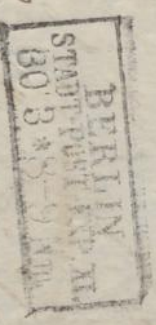 BERLIN
STADT-POST EXP. XI.
30 3 * 8-9 NM.